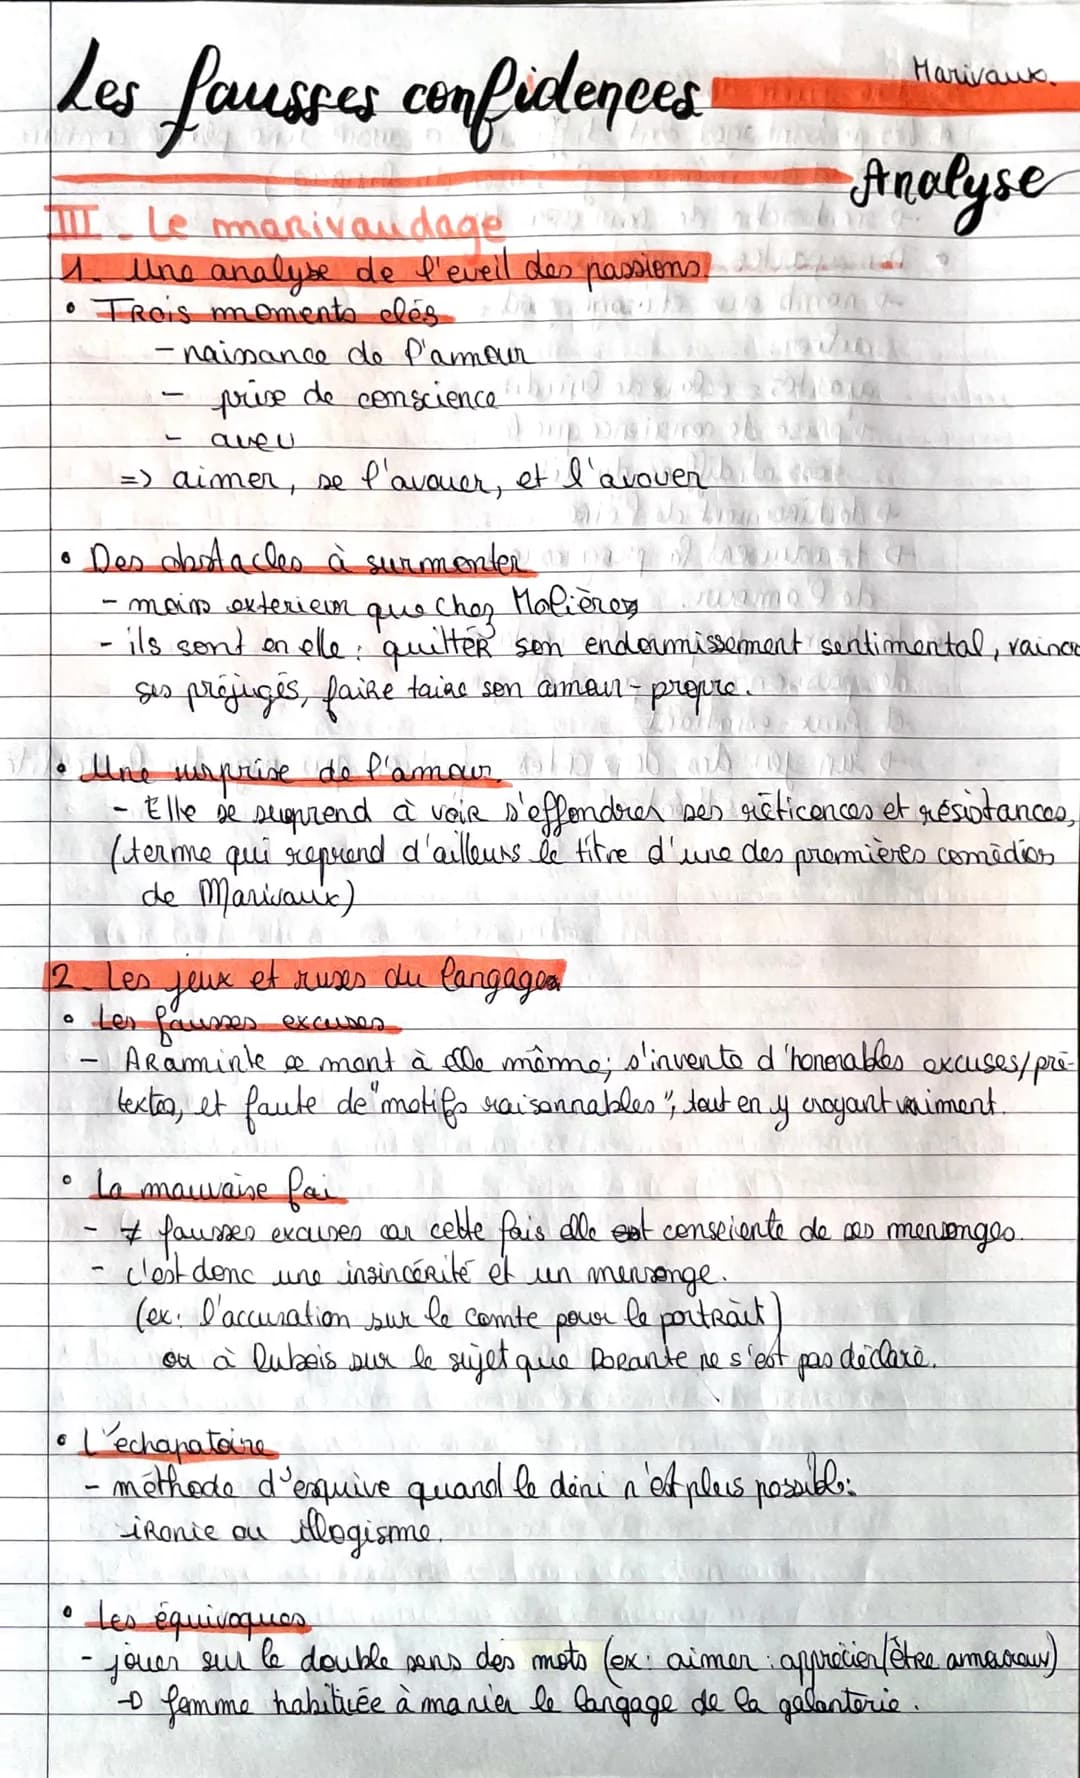 Les fausses confidences
Marivaux.
Analyse
III - Le marivaudage
1. Une analyse de l'eveil des passions.
• Trois moments clés
- naissance de l'amour
- prise de conscience
- aveu
=> aimer, se l'avouer, et l'avouer
• Des obstacles à surmonter
- moins exterieur que chez Molières
- ils sont en elle : quitter son endormissement sentimental, vaincre
ses préjugés, faire taire son amour-propre.
• Une surprise de l'amour.
- Elle se surprend à voir s'effondrer ses réticences et résistances,
(terme qui reprend d'ailleurs le titre d'une des premières comédies
de Marivaux)
2. Les jeux et ruses du langage
• Les fausses excuses
- Araminte se ment à elle même ; s'invente d'honorables excuses/pré-
textes, et faute de "motifs raisonnables", tout en y croyant vraiment.
• La mauvaise foi
- ≠ fausses excuses car cette fois elle est consciente de ses mensonges.
- c'est donc une insincérité et un mensonge.
(ex: l'accusation sur le comte pour le portrait)
ou à Dubois sur le sujet que Dorante ne s'est pas déclaré.
• L'échapatoire
- méthode d'esquive quand le déni n'est plus possible:
ironie ou illogisme.
• Les équivoques
- jouer sur le double sens des mots (ex: aimer : apprécier/être amoureux)
→ femme habituée à manier le langage de la galanterie.